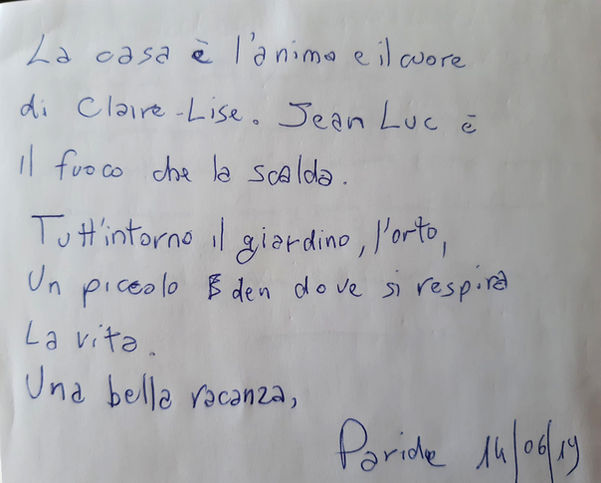 La casa è l'anima e il cuore
di Claire-Lise. Jean Luc è
il fuoco che la scalda.
Tutt'intorno il giardino, l'orto,
Un piccolo Eden dove si respira
La vita.
Una bella vacanza,
Paride 14/06/19